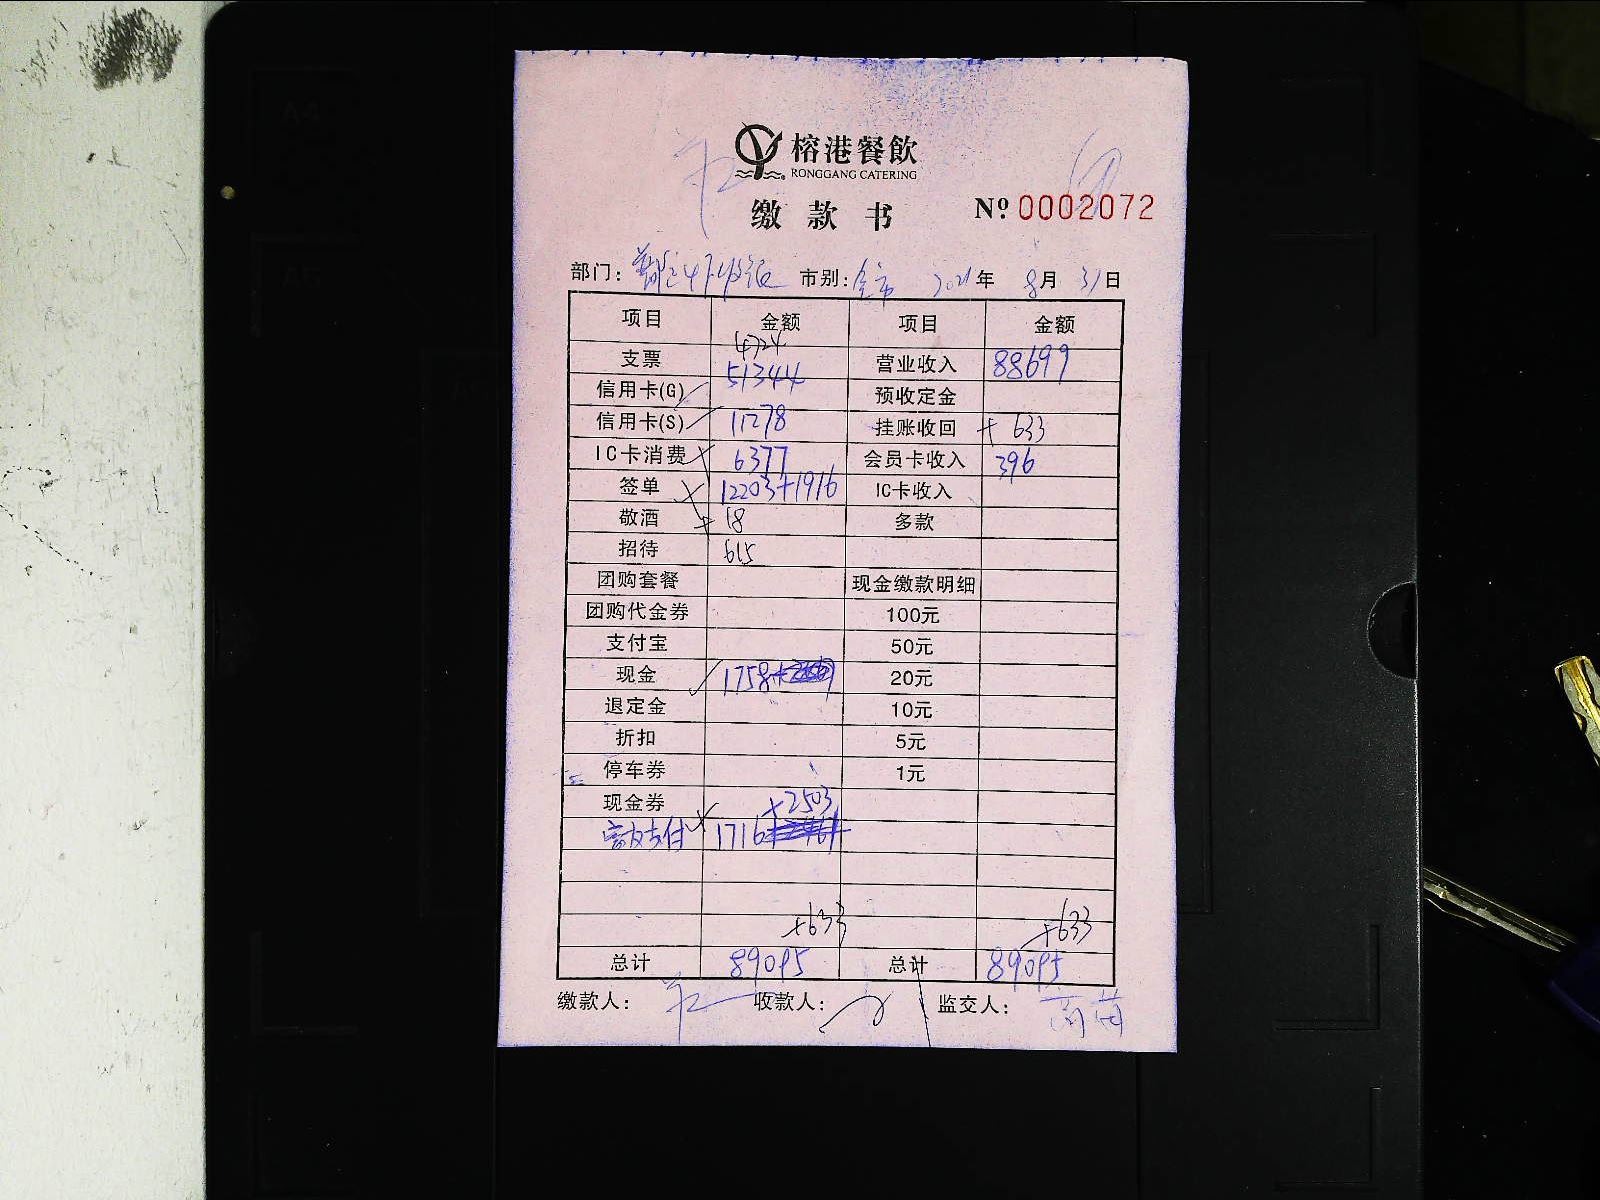 榕港餐飲
RONGGANG CATERING
缴款书 Nº 0002072
部门: 市别: 全市 2021年 8月 31日
项目 金额 项目 金额
4724
支票 营业收入 88699
信用卡(G) 51344 预收定金
信用卡(S) 11278 挂账收回 + 633
IC卡消费 6377 会员卡收入 396
签单 12203+1916 IC卡收入
敬酒 18 多款
招待 615
团购套餐 现金缴款明细
团购代金券 100元
支付宝 50元
现金 1758 20元
退定金 10元
折扣 5元
停车券 1元
现金券 +2503
支付 1716
+633 +633
总计 89095 总计 89095
缴款人: 收款人: 监交人: